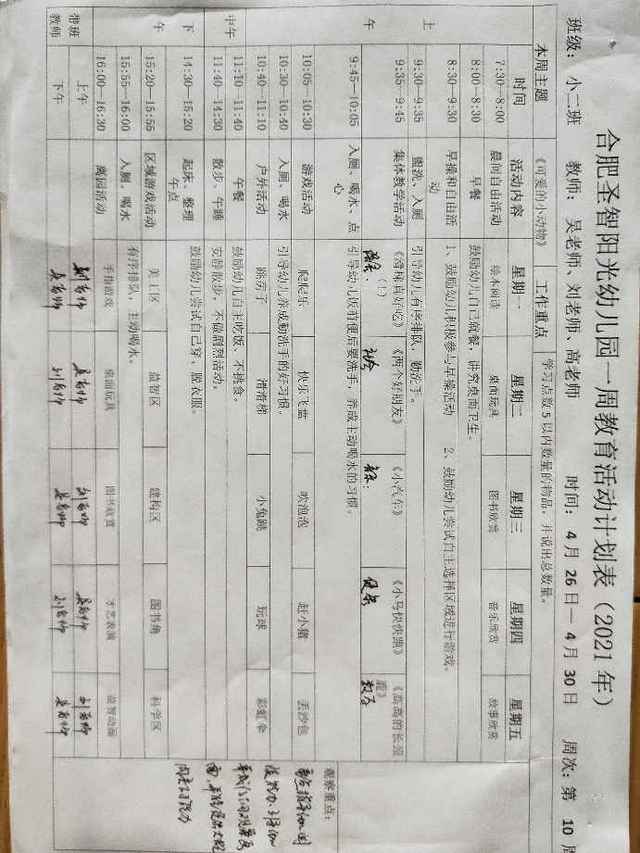 合肥圣智阳光幼儿园一周教育活动计划表（2021 年）
班级： 小二班 教师： 吴老师、刘老师、高老师 时间：4 月 26 日—4 月 30 日 周次：第 10 周
本周主题 《可爱的小动物》 工作重点 学习点数 5 以内数量的物品，并说出总数量。
时间 活动内容 星期一 星期二 星期三 星期四 星期五
上
7:30—8:00 晨间自由活动 绘本阅读 桌面玩具 图书欣赏 音乐欣赏 故事欣赏
8:00—8:30 早餐 鼓励幼儿自己就餐，讲究桌面卫生。
8:30—9:30 早操和自由活动 1、鼓励幼儿积极参与早操活动 2、鼓励幼儿尝试自主选择区域进行游戏。
9:30—9:35 盥洗、入厕 引导幼儿有序排队、勤洗手。
9:35—9:45 集体教学活动 《滑梯真好吃》（1） 《两个好朋友》 《小汽车》 《小马快快跑》 《高高的长颈鹿》
语言： 社会： 健康
午
9:45—10:05 入厕、喝水、点心 引导幼儿饭前便后要洗手，养成主动喝水的习惯。
10:05—10:30 游戏活动 爬爬乐 快乐飞盘 吹泡泡 赶小猪 丢沙包
10:30—10:40 入厕、喝水 引导幼儿养成勤洗手的好习惯。
10:40—11:10 户外活动 踢房子 滑滑梯 小兔跳 玩球 彩虹伞
中午
11:10—11:40 午餐 鼓励幼儿自主吃饭、不挑食。
11:40—14:30 散步、午睡 安静散步，不做剧烈活动。
下
14:30—15:20 起床、整理 午点 鼓励幼儿尝试自己穿、脱衣服。
午
15:20—15:55 区域游戏活动 美工区 益智区 建构区 图书角 科学区
15:55—16:00 入厕、喝水 有序排队，主动喝水。
16:00—16:30 离园活动 手指游戏 桌面玩具 图书欣赏 才艺表演 益智动画
带班教师 上午 刘老师 吴老师 刘老师 吴老师 刘老师
下午 吴老师 刘老师 吴老师 刘老师 吴老师
观察重点：